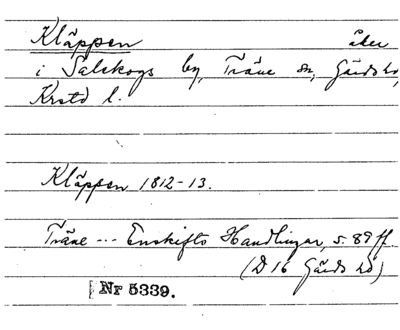 Kläppen åker
i Salskogs by, Träne sn, Gärds hd,
Krstd l.
Kläppen 1812-13.
Träne --- Enskifts Handlingar, s. 89 ff.
(D 16 Gärds hd)
Nr 5339.